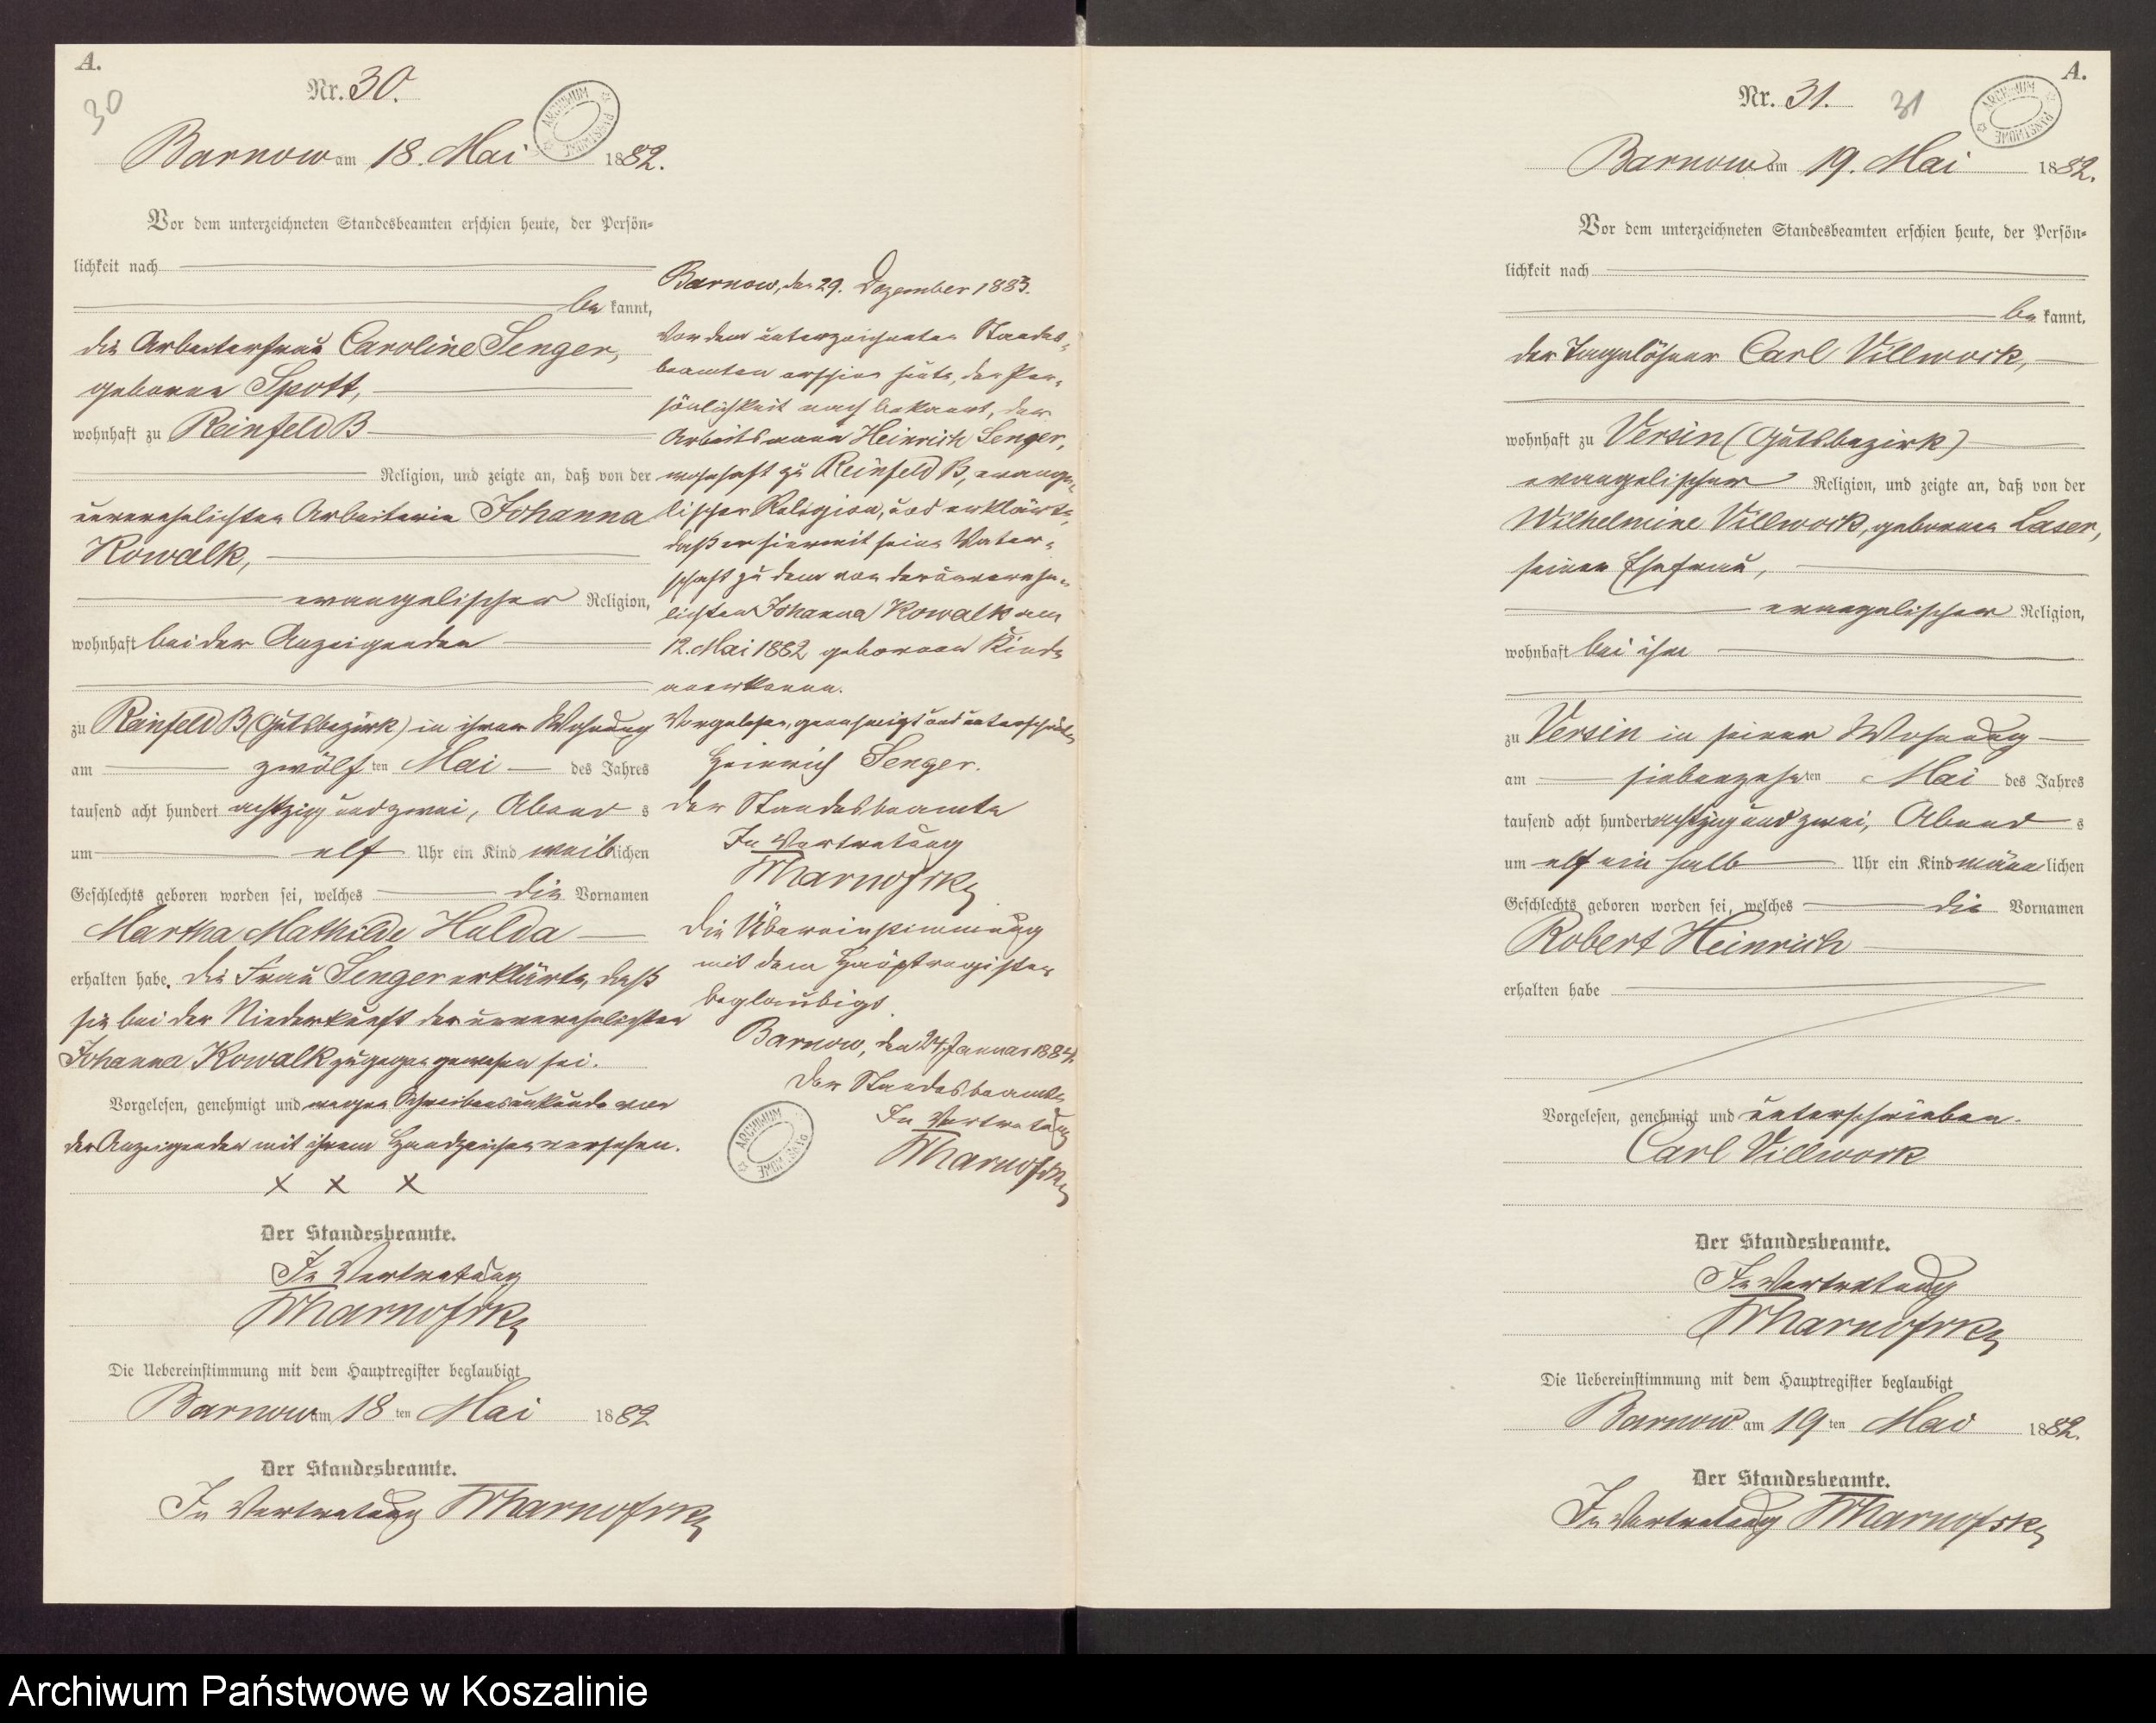 A.
30
Nr. 30.
Barnow am 18. Mai 1882.
Vor dem unterzeichneten Standesbeamten erschien heute, der Persön-
lichkeit nach
be kannt,
die Arbeiterfrau Caroline Senger,
geborene Spott,
wohnhaft zu Reinfeld B
Religion, und zeigte an, daß von der
unverehelichten Arbeiterin Johanna
Kowalk,
evangelischer Religion,
wohnhaft bei der Anzeigenden
zu Reinfeld B (Gutsbezirk) in ihrer Wohnung
am zwölf ten Mai des Jahres
tausend acht hundert achtzig und zwei, Abend s
um elf Uhr ein Kind weib lichen
Geschlechts geboren worden sei, welches die Vornamen
Martha Mathilde Hulda
erhalten habe. Die Frau Senger erklärte, daß
sie bei der Niederkunft der unverehelichten
Johanna Kowalk zugegen gewesen sei.
Vorgelesen, genehmigt und wegen Schreibensunkunde von
der Anzeigenden mit ihrem Handzeichen versehen.
x x x
Der Standesbeamte.
In Vertretung
Die Uebereinstimmung mit dem Hauptregister beglaubigt
Barnow am 18 ten Mai 1882
Der Standesbeamte.
In Vertretung
Barnow, den 29. Dezember 1883.
Vor dem unterzeichneten Standes-
beamten erschien heute, der Per-
sönlichkeit nach bekannt, der
Arbeitsmann Heinrich Senger,
wohnhaft zu Reinfeld B, evange-
lischer Religion, und erklärte,
daß er hiermit seine Vater-
schaft zu dem von der unverehe-
lichten Johanna Kowalk am
12. Mai 1882 geborenen Kinde
anerkenne.
Vorgelesen, genehmigt und unterschrieben
Heinrich Senger.
Der Standesbeamte
In Vertretung
Die Übereinstimmung
mit dem Hauptregister
beglaubigt
Barnow, den 24. Januar 1884
Der Standesbeamte
In Vertretung
ARCHIWUM PAŃSTWOWE
A.
Nr. 31.
31
Barnow am 19. Mai 1882.
Vor dem unterzeichneten Standesbeamten erschien heute, der Persön-
lichkeit nach
be kannt,
der Tagelöhner Carl Villwock,
wohnhaft zu Versin (Gutsbezirk)
evangelischer Religion, und zeigte an, daß von der
Wilhelmine Villwock, geborenen Laser,
seiner Ehefrau,
evangelischer Religion,
wohnhaft bei ihm
zu Versin in seiner Wohnung
am siebenzehn ten Mai des Jahres
tausend acht hundert achtzig und zwei, Abend s
um elf ein halb Uhr ein Kind männ lichen
Geschlechts geboren worden sei, welches die Vornamen
Robert Heinrich
erhalten habe
Vorgelesen, genehmigt und unterschrieben.
Carl Villwock
Der Standesbeamte.
In Vertretung
Die Uebereinstimmung mit dem Hauptregister beglaubigt
Barnow am 19 ten Mai 1882.
Der Standesbeamte.
In Vertretung
Archiwum Państwowe w Koszalinie